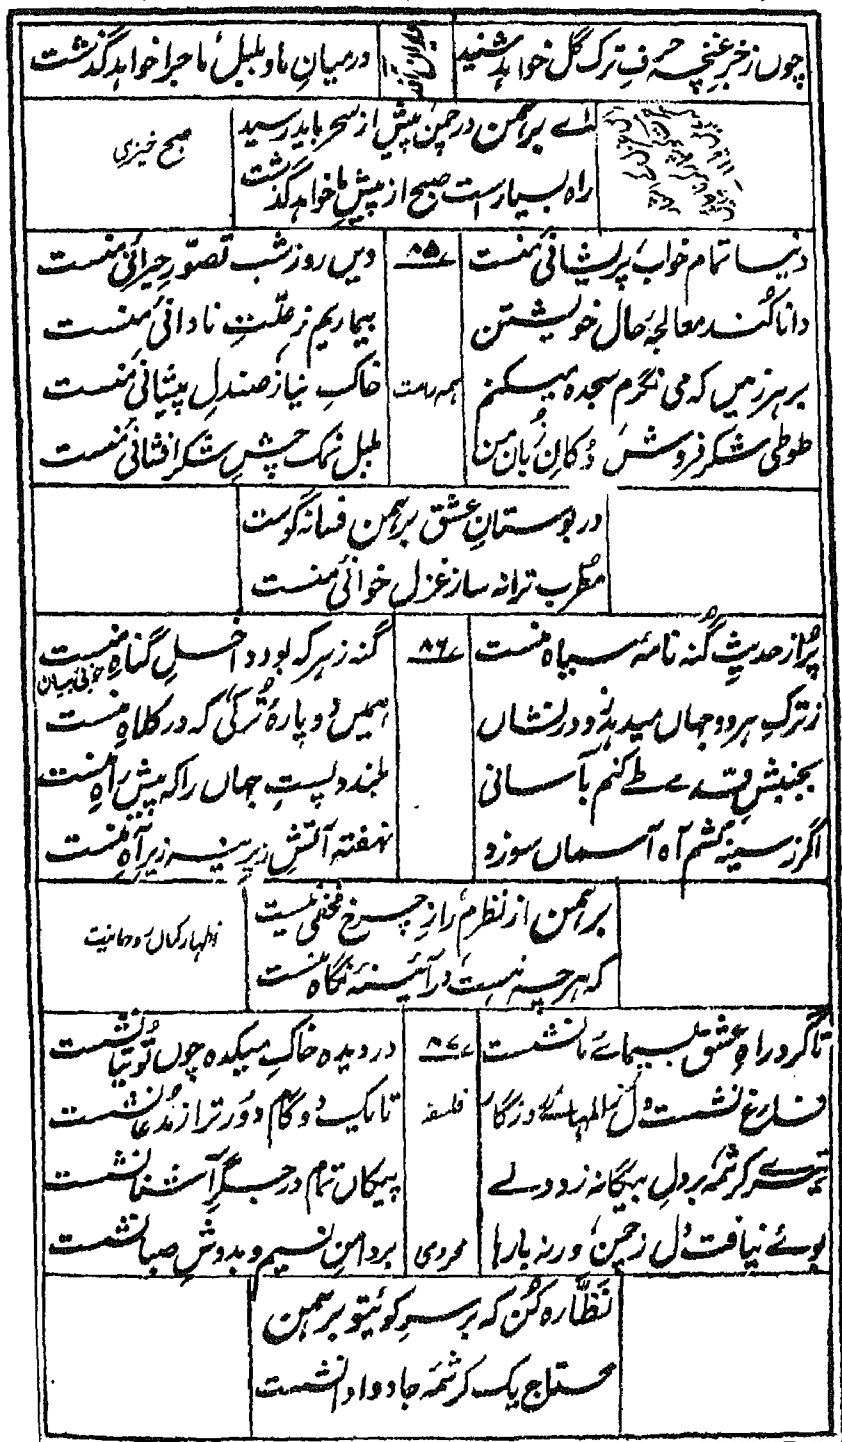 چوں زخبر غنچہ حرفِ ترک گل خواہد شنید درمیانِ ما و بلبل ماجرا خواہد گذشت
اے برہمن در چمن پیش از سحر باید رسید
صبح خیزی
راہ بسیار است صبح از پیشِ ما خواہد گذشت
دنیا تمام خواب پریشانیٔ منست ۸۵ ویں روز شب تصوّرِ حیرانیٔ منست
دانا کند معالجۂ حال خویشتن بیماریم ز علّتِ نادانیٔ منست
بر ہر زمیں کہ می نگرم سجدہ میکنم ہمہ اوست خاکِ نیاز صندلِ پیشانیٔ منست
طوطی شکر فروش دُکانِ زبان من بلبل نمک چشِ شکر افشانیٔ منست
در بوستانِ عشق برہمن فسانہ گوست
مطرب ترانہ ساز غزل خوانیٔ منست
پُر از حدیثِ گنہ نامۂ سیاہ منست ۸۶ گنہ ز ہر کہ بود داخلِ گناہِ منست
خوبیٔ بیان
ز ترکِ ہر دو جہاں میدہد نشاں ہمیں دو پارۂ تُرکی کہ در کلاہِ منست
بجنبشِ قدمے طے کنم بآسانی بلند و پستِ جہاں را کہ پیش راہِ منست
اگر ز سینہ کشم آہ آسماں سوزد نہفتہ آتشِ زیرینہ زیرِ آہِ منست
برہمن از نظرم رازِ چرخ مخفی نیست
اظہار کمال روحانیت
کہ ہر چہ نیست در آئینۂ نگاہ منست
تا گرد راہِ عشق بسیمائے ما نشست ۸۷ در دیدہ خاکِ میکدہ چوں توتیا نشست
فارغ نشست دل روزگار فلسفہ تا یک دو گام دُور تر از مُدّعا نشست
تیرے کرشمہ بر دلِ بیگانہ زد ولے پیکاں تمام در جگرِ آشنا نشست
بوئے نیافت دل ز چمن ورنہ بارہا محرومی بر دامنِ نسیم و بدوشِ صبا نشست
نظّارہ کُن کہ بر سرِ کوئیتو برہمن
محتاج یک کرشمۂ جادو ادا نشست